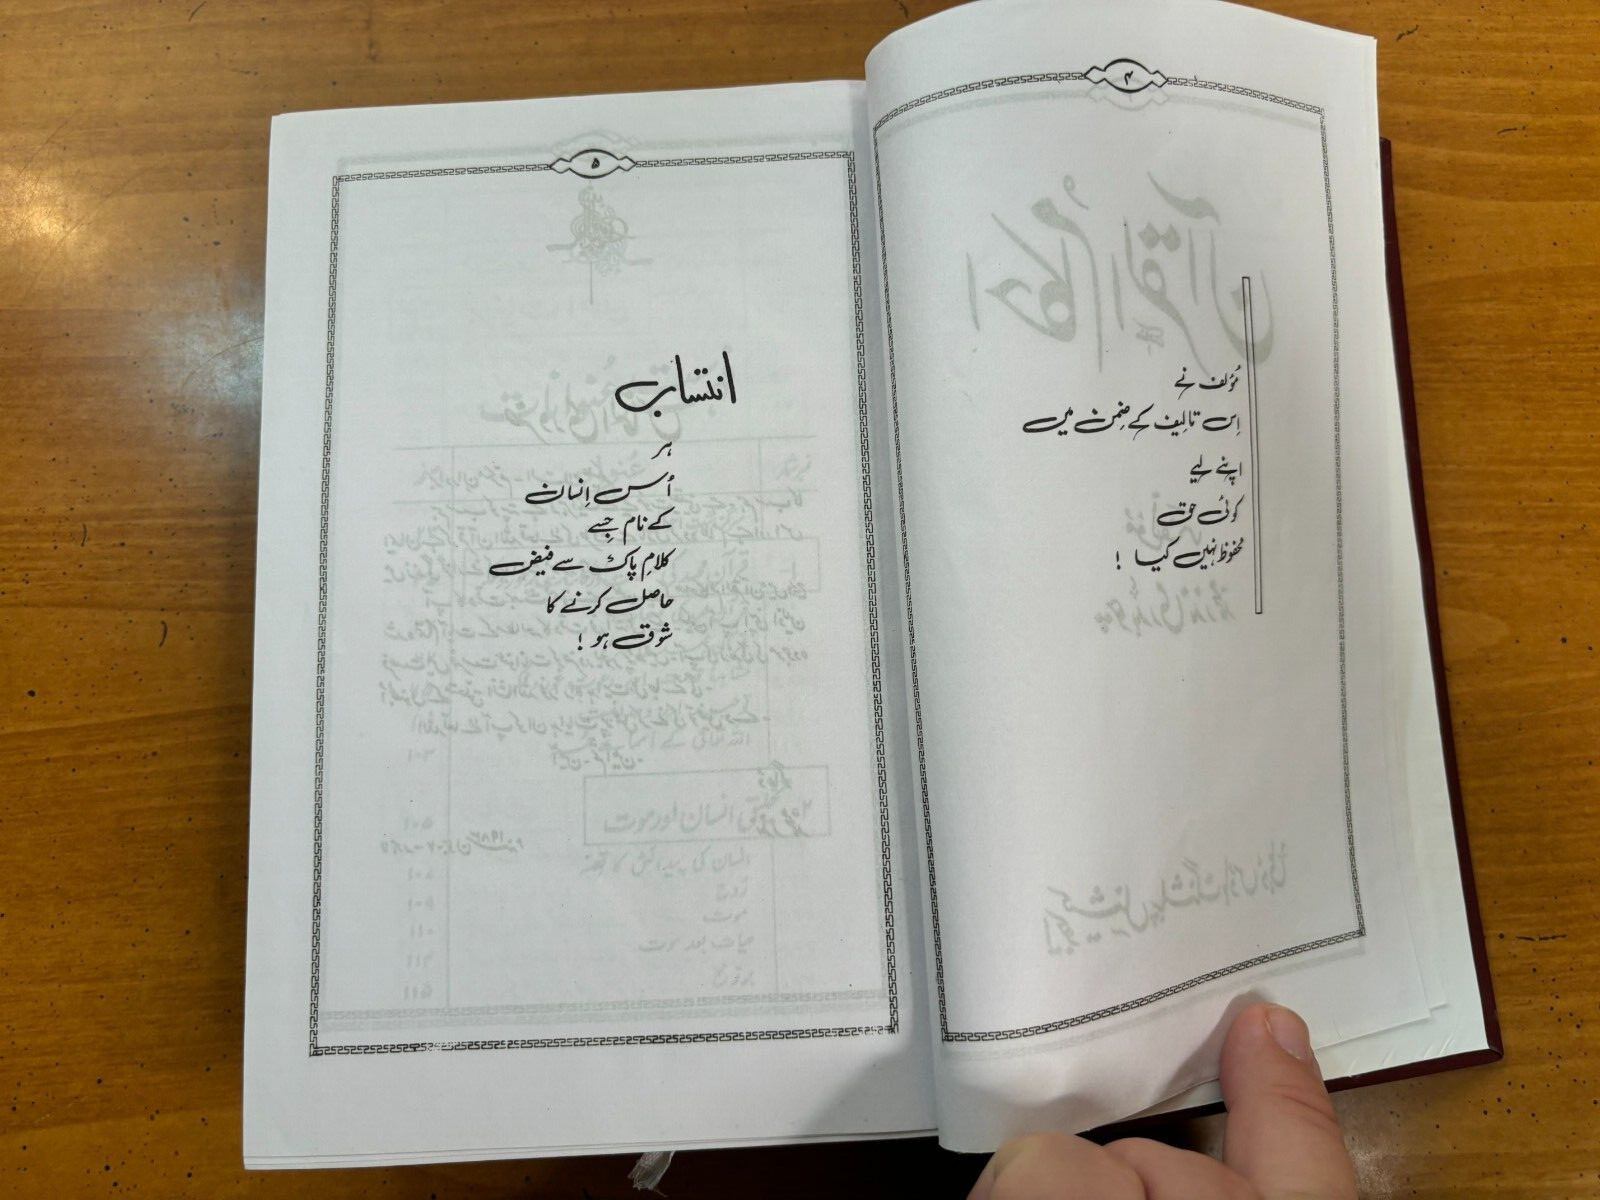 ۴
مُؤلف نے
اِس تالیف کے ضِمن میں
اپنے لیے
کوئی حق
محفوظ نہیں کیا !
۵
انتساب
ہر
اُس اِنسان
کے نام جِسے
کلامِ پاک سے فیض
حاصل کرنے کا
شوق ہو !